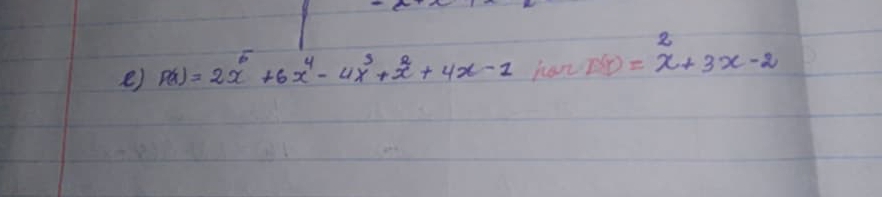 e) P(x) = 2x⁵ + 6x⁴ - 4x³ + x² + 4x - 2 par D(x) = x² + 3x - 2